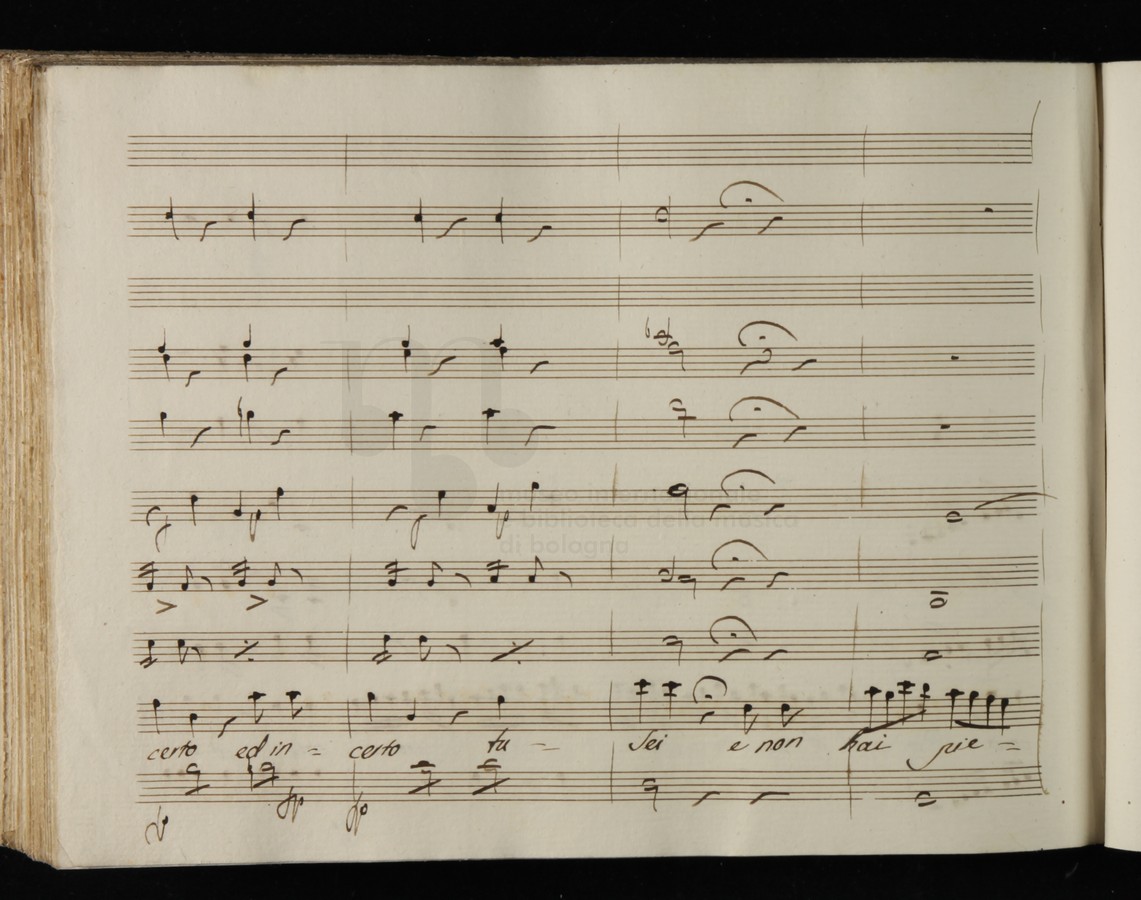 museo internazionale
e biblioteca della musica
di bologna
certo ed in = certo tu = sei e non hai pie =